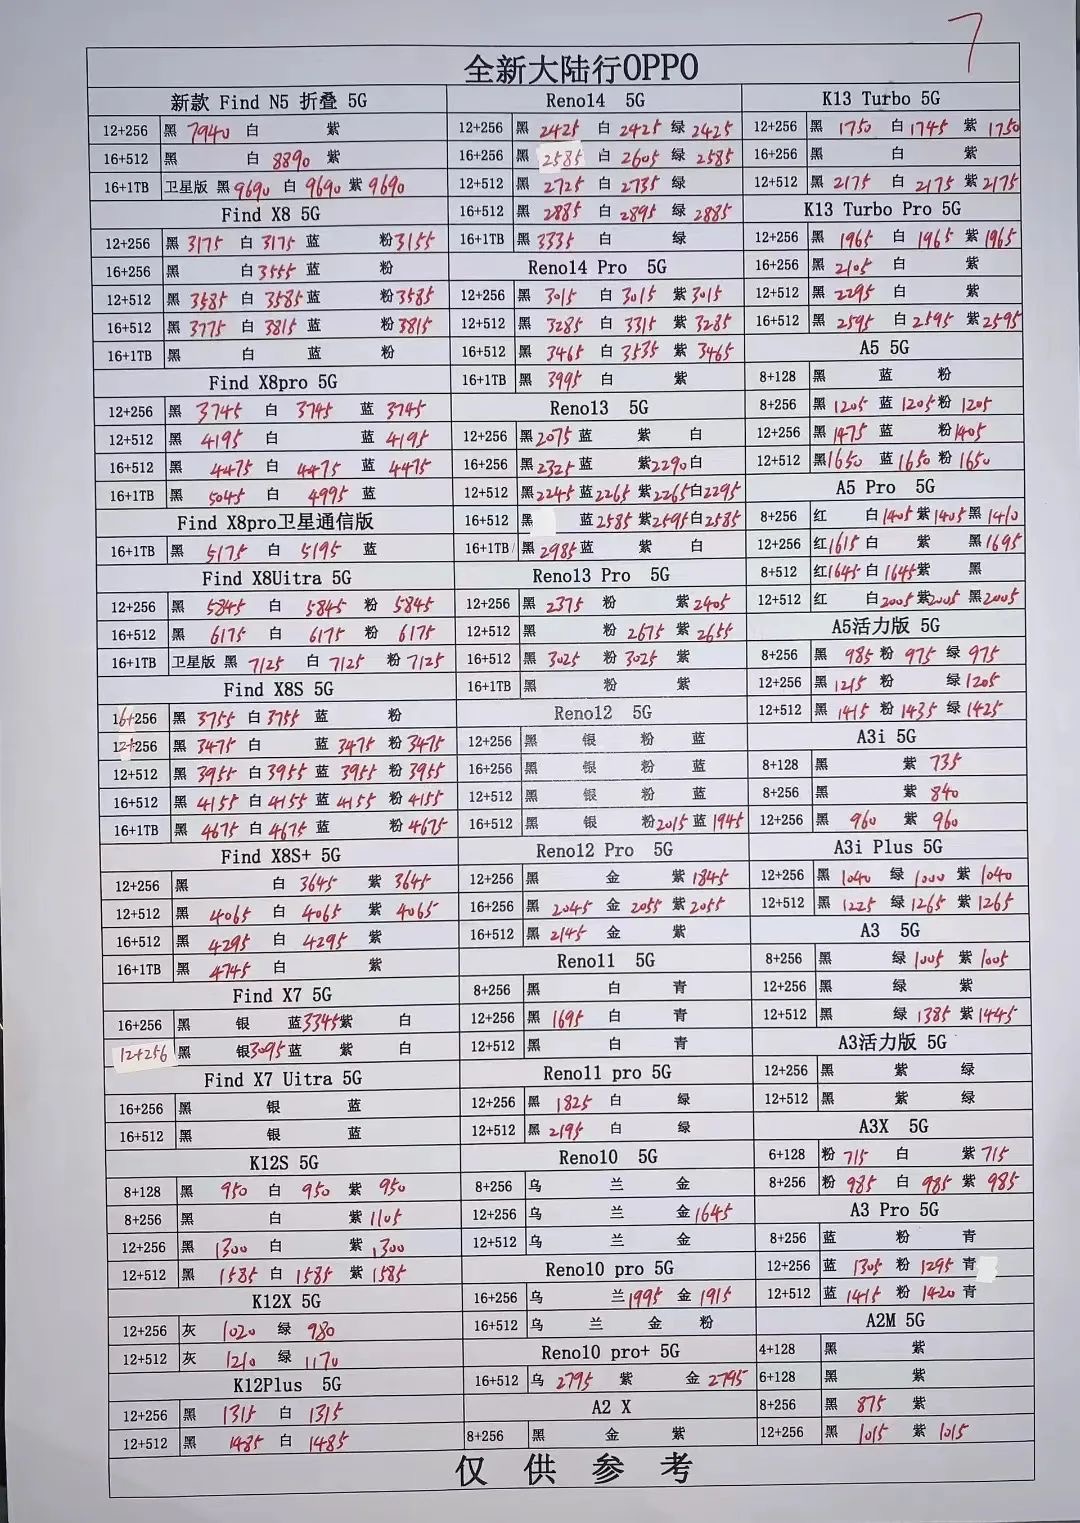 7
全新大陆行OPPO
新款 Find N5 折叠 5G
12+256 黑 7940 白 紫
16+512 黑 白 8890 紫
16+1TB 卫星版 黑 9690 白 9690 紫 9690
Find X8 5G
12+256 黑 3175 白 3175 蓝 粉 3155
16+256 黑 白 3555 蓝 粉
12+512 黑 3585 白 3585 蓝 粉 3585
16+512 黑 3775 白 3815 蓝 粉 3815
16+1TB 黑 白 蓝 粉
Find X8pro 5G
12+256 黑 3745 白 3745 蓝 3745
12+512 黑 4195 白 蓝 4195
16+512 黑 4475 白 4475 蓝 4475
16+1TB 黑 5045 白 4995 蓝
Find X8pro卫星通信版
16+1TB 黑 5175 白 5195 蓝
Find X8Uitra 5G
12+256 黑 5845 白 5845 粉 5845
16+512 黑 6175 白 6175 粉 6175
16+1TB 卫星版 黑 7125 白 7125 粉 7125
Find X8S 5G
16+256 黑 3755 白 3755 蓝 粉
12+256 黑 3475 白 蓝 3475 粉 3475
12+512 黑 3955 白 3955 蓝 3955 粉 3955
16+512 黑 4155 白 4155 蓝 4155 粉 4155
16+1TB 黑 4675 白 4675 蓝 粉 4675
Find X8S+ 5G
12+256 黑 白 3645 紫 3645
12+512 黑 4065 白 4065 紫 4065
16+512 黑 4295 白 4295 紫
16+1TB 黑 4745 白 紫
Find X7 5G
16+256 黑 银 蓝 3345 紫 白
12+256 黑 银 3095 蓝 紫 白
Find X7 Uitra 5G
16+256 黑 银 蓝
16+512 黑 银 蓝
K12S 5G
8+128 黑 950 白 950 紫 950
8+256 黑 白 紫 1105
12+256 黑 1300 白 紫 1300
12+512 黑 1585 白 1585 紫 1585
K12X 5G
12+256 灰 1020 绿 980
12+512 灰 1210 绿 1170
K12Plus 5G
12+256 黑 1315 白 1315
12+512 黑 1485 白 1485
Reno14 5G
12+256 黑 2425 白 2425 绿 2425
16+256 黑 2585 白 2605 绿 2585
12+512 黑 2725 白 2735 绿
16+512 黑 2885 白 2895 绿 2885
16+1TB 黑 3335 白 绿
Reno14 Pro 5G
12+256 黑 3015 白 3015 紫 3015
12+512 黑 3285 白 3315 紫 3285
16+512 黑 3465 白 3535 紫 3465
16+1TB 黑 3995 白 紫
Reno13 5G
12+256 黑 2075 蓝 紫 白
16+256 黑 2325 蓝 紫 2290 白
12+512 黑 2245 蓝 2265 紫 2265 白 2295
16+512 黑 蓝 2585 紫 2595 白 2585
16+1TB 黑 2985 蓝 紫 白
Reno13 Pro 5G
12+256 黑 2375 粉 紫 2405
12+512 黑 粉 2675 紫 2655
16+512 黑 3025 粉 3025 紫
16+1TB 黑 粉 紫
Reno12 5G
12+256 黑 银 粉 蓝
16+256 黑 银 粉 蓝
12+512 黑 银 粉 蓝
16+512 黑 银 粉 2015 蓝 1945
Reno12 Pro 5G
12+256 黑 金 紫 1845
16+256 黑 2045 金 2055 紫 2055
16+512 黑 2145 金 紫
Reno11 5G
8+256 黑 白 青
12+256 黑 1695 白 青
12+512 黑 白 青
Reno11 pro 5G
12+256 黑 1825 白 绿
12+512 黑 2195 白 绿
Reno10 5G
8+256 乌 兰 金
12+256 乌 兰 金 1645
12+512 乌 兰 金
Reno10 pro 5G
16+256 乌 兰 1995 金 1915
16+512 乌 兰 金 粉
Reno10 pro+ 5G
16+512 乌 2795 紫 金 2795
A2 X
8+256 黑 金 紫
K13 Turbo 5G
12+256 黑 1750 白 1745 紫 1750
16+256 黑 白 紫
12+512 黑 2175 白 2175 紫 2175
K13 Turbo Pro 5G
12+256 黑 1965 白 1965 紫 1965
16+256 黑 2105 白 紫
12+512 黑 2295 白 紫
16+512 黑 2595 白 2595 紫 2595
A5 5G
8+128 黑 蓝 粉
8+256 黑 1205 蓝 1205 粉 1205
12+256 黑 1475 蓝 粉 1405
12+512 黑 1650 蓝 1650 粉 1650
A5 Pro 5G
8+256 红 白 1405 紫 1405 黑 1410
12+256 红 1615 白 紫 黑 1695
8+512 红 1645 白 1645 紫 黑
12+512 红 白 2005 紫 2005 黑 2005
A5活力版 5G
8+256 黑 985 粉 975 绿 975
12+256 黑 1215 粉 绿 1205
12+512 黑 1415 粉 1435 绿 1425
A3i 5G
8+128 黑 紫 735
8+256 黑 紫 840
12+256 黑 960 紫 960
A3i Plus 5G
12+256 黑 1040 绿 1000 紫 1040
12+512 黑 1225 绿 1265 紫 1265
A3 5G
8+256 黑 绿 1005 紫 1005
12+256 黑 绿 紫
12+512 黑 绿 1385 紫 1445
A3活力版 5G
12+256 黑 紫 绿
12+512 黑 紫 绿
A3X 5G
6+128 粉 715 白 紫 715
8+256 粉 985 白 985 紫 985
A3 Pro 5G
8+256 蓝 粉 青
12+256 蓝 1305 粉 1295 青
12+512 蓝 1415 粉 1420 青
A2M 5G
4+128 黑 紫
6+128 黑 紫
8+256 黑 875 紫
12+256 黑 1015 紫 1015
仅供参考